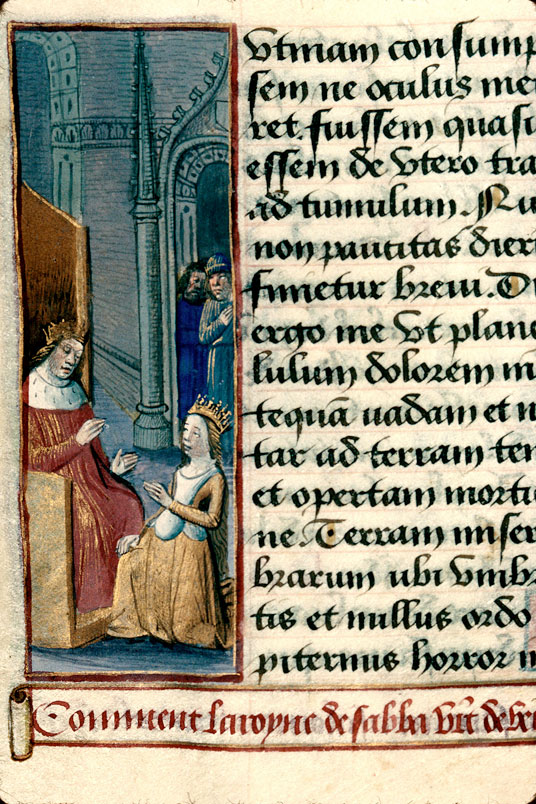 Vtinam consump
sem ne oculus me
ret. fuissem quasi
essem de Vtero tra
ad tumulum. Nu
non paucitas dier
finietur breui. Di
ergo me Vt plan
lulum dolorem m
tequā uadam et n
tar ad terram ten
et opertam morti
ne. Terram miser
brarum ubi Vmb
tis et nullus ordo
piternus horror
Comment la royne de sabba